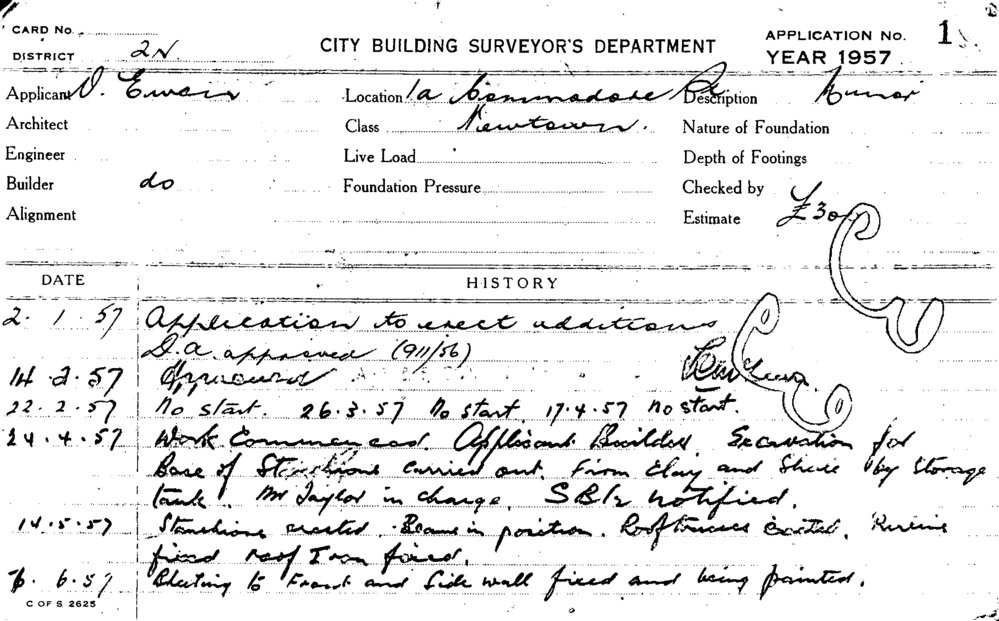 CARD No.
DISTRICT 2N
CITY BUILDING SURVEYOR'S DEPARTMENT
APPLICATION No. 1
YEAR 1957
Applicant D. Ewen Location 1a Commodore Description Minor
Architect Class Newtown. Nature of Foundation
Engineer Live Load Depth of Footings
Builder do Foundation Pressure Checked by
Alignment Estimate £30
DATE HISTORY
2. 1. 57 Application to erect additions
D.A. approved (911/56)
14. 2. 57 Approved
22. 2. 57 No start. 26.3.57 No start 17.4.57 No start.
24. 4. 57 Work Commenced. Applicant Builder. Excavation for
Base of Stanchions carried out. From Clay and Shale by Storage
tank. Mr Taylor in charge. notified.
14.5.57 Stanchions erected. Beams in position. Roof trusses erected.
fixed roof Iron fixed.
6. 57 Sheeting to Front and Side wall fixed and being painted.
C OF S 2625